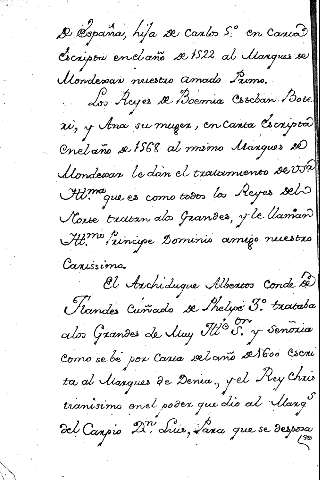 de España, hija de Carlos 5.º en Carta
escripta en el año de 1522 al Marques de
Mondexar nuestro amado Primo.
Los Reyes de Boemia Esteban Bote-
ri, y Ana su muger, en Carta Escripta
en el año de 1568 al mismo Marques de
Mondexar le dan el tratamiento de
Ill.ma que es como todos los Reyes del
Norte tratan a los Grandes, y le llaman
Ill.mo Principe Dominio amigo nuestro
Carissimo.
El Archiduque Alberto Conde de
Flandes Cuñado de Phelipe 3.º trataba
a los Grandes de Muy Ill.e S.or y Señoria
como se bé por Carta del año de 1600 escri
ta al Marques de Denia, y el Rey Chris
tianisimo en el poder que dio al Marq.s
del Carpio D.n Luis, Para que se desposa